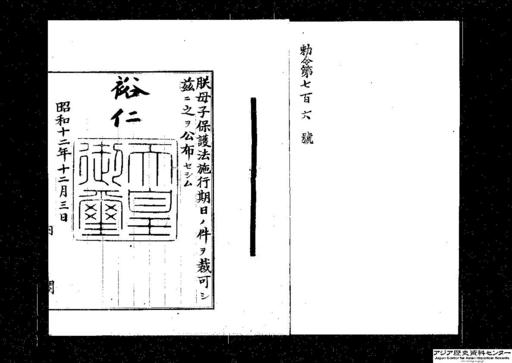 勅令第七百六號
朕母子保護法施行期日ノ件ヲ裁可シ
茲ニ之ヲ公布セシム
裕仁
天皇御璽
昭和十二年十二月三日
内閣
アジア歴史資料センター
Japan Center for Asian Historical Records